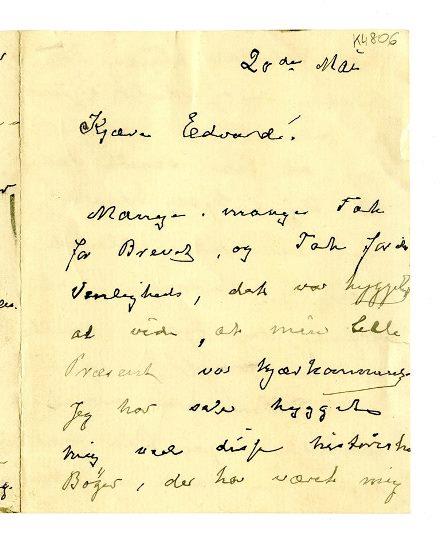 K4806
20de Mai
Kjære Edvard!
Mange, mange Tak
for Brevet, og Tak for din
Venligheds, det var hyggeligt
at vide, at min lille
Præsent var kjærkommen
Jeg har selv hygget
mig ved disse historiske
Bøger, der har været mig